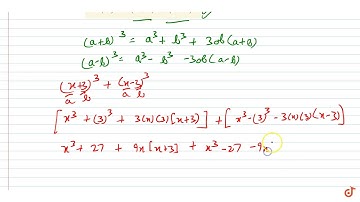 (a+b)³ = a³ + b³ + 3ab(a+b)
(a-b)³ = a³ - b³ - 3ab(a-b)
(x+3)³ + (x-3)³
a b a b
[x³ + (3)³ + 3(x)(3)[x+3)] + [x³-(3)³ - 3(x)(3)(x-3)]
x³ + 27 + 9x[x+3] + x³-27 -9x